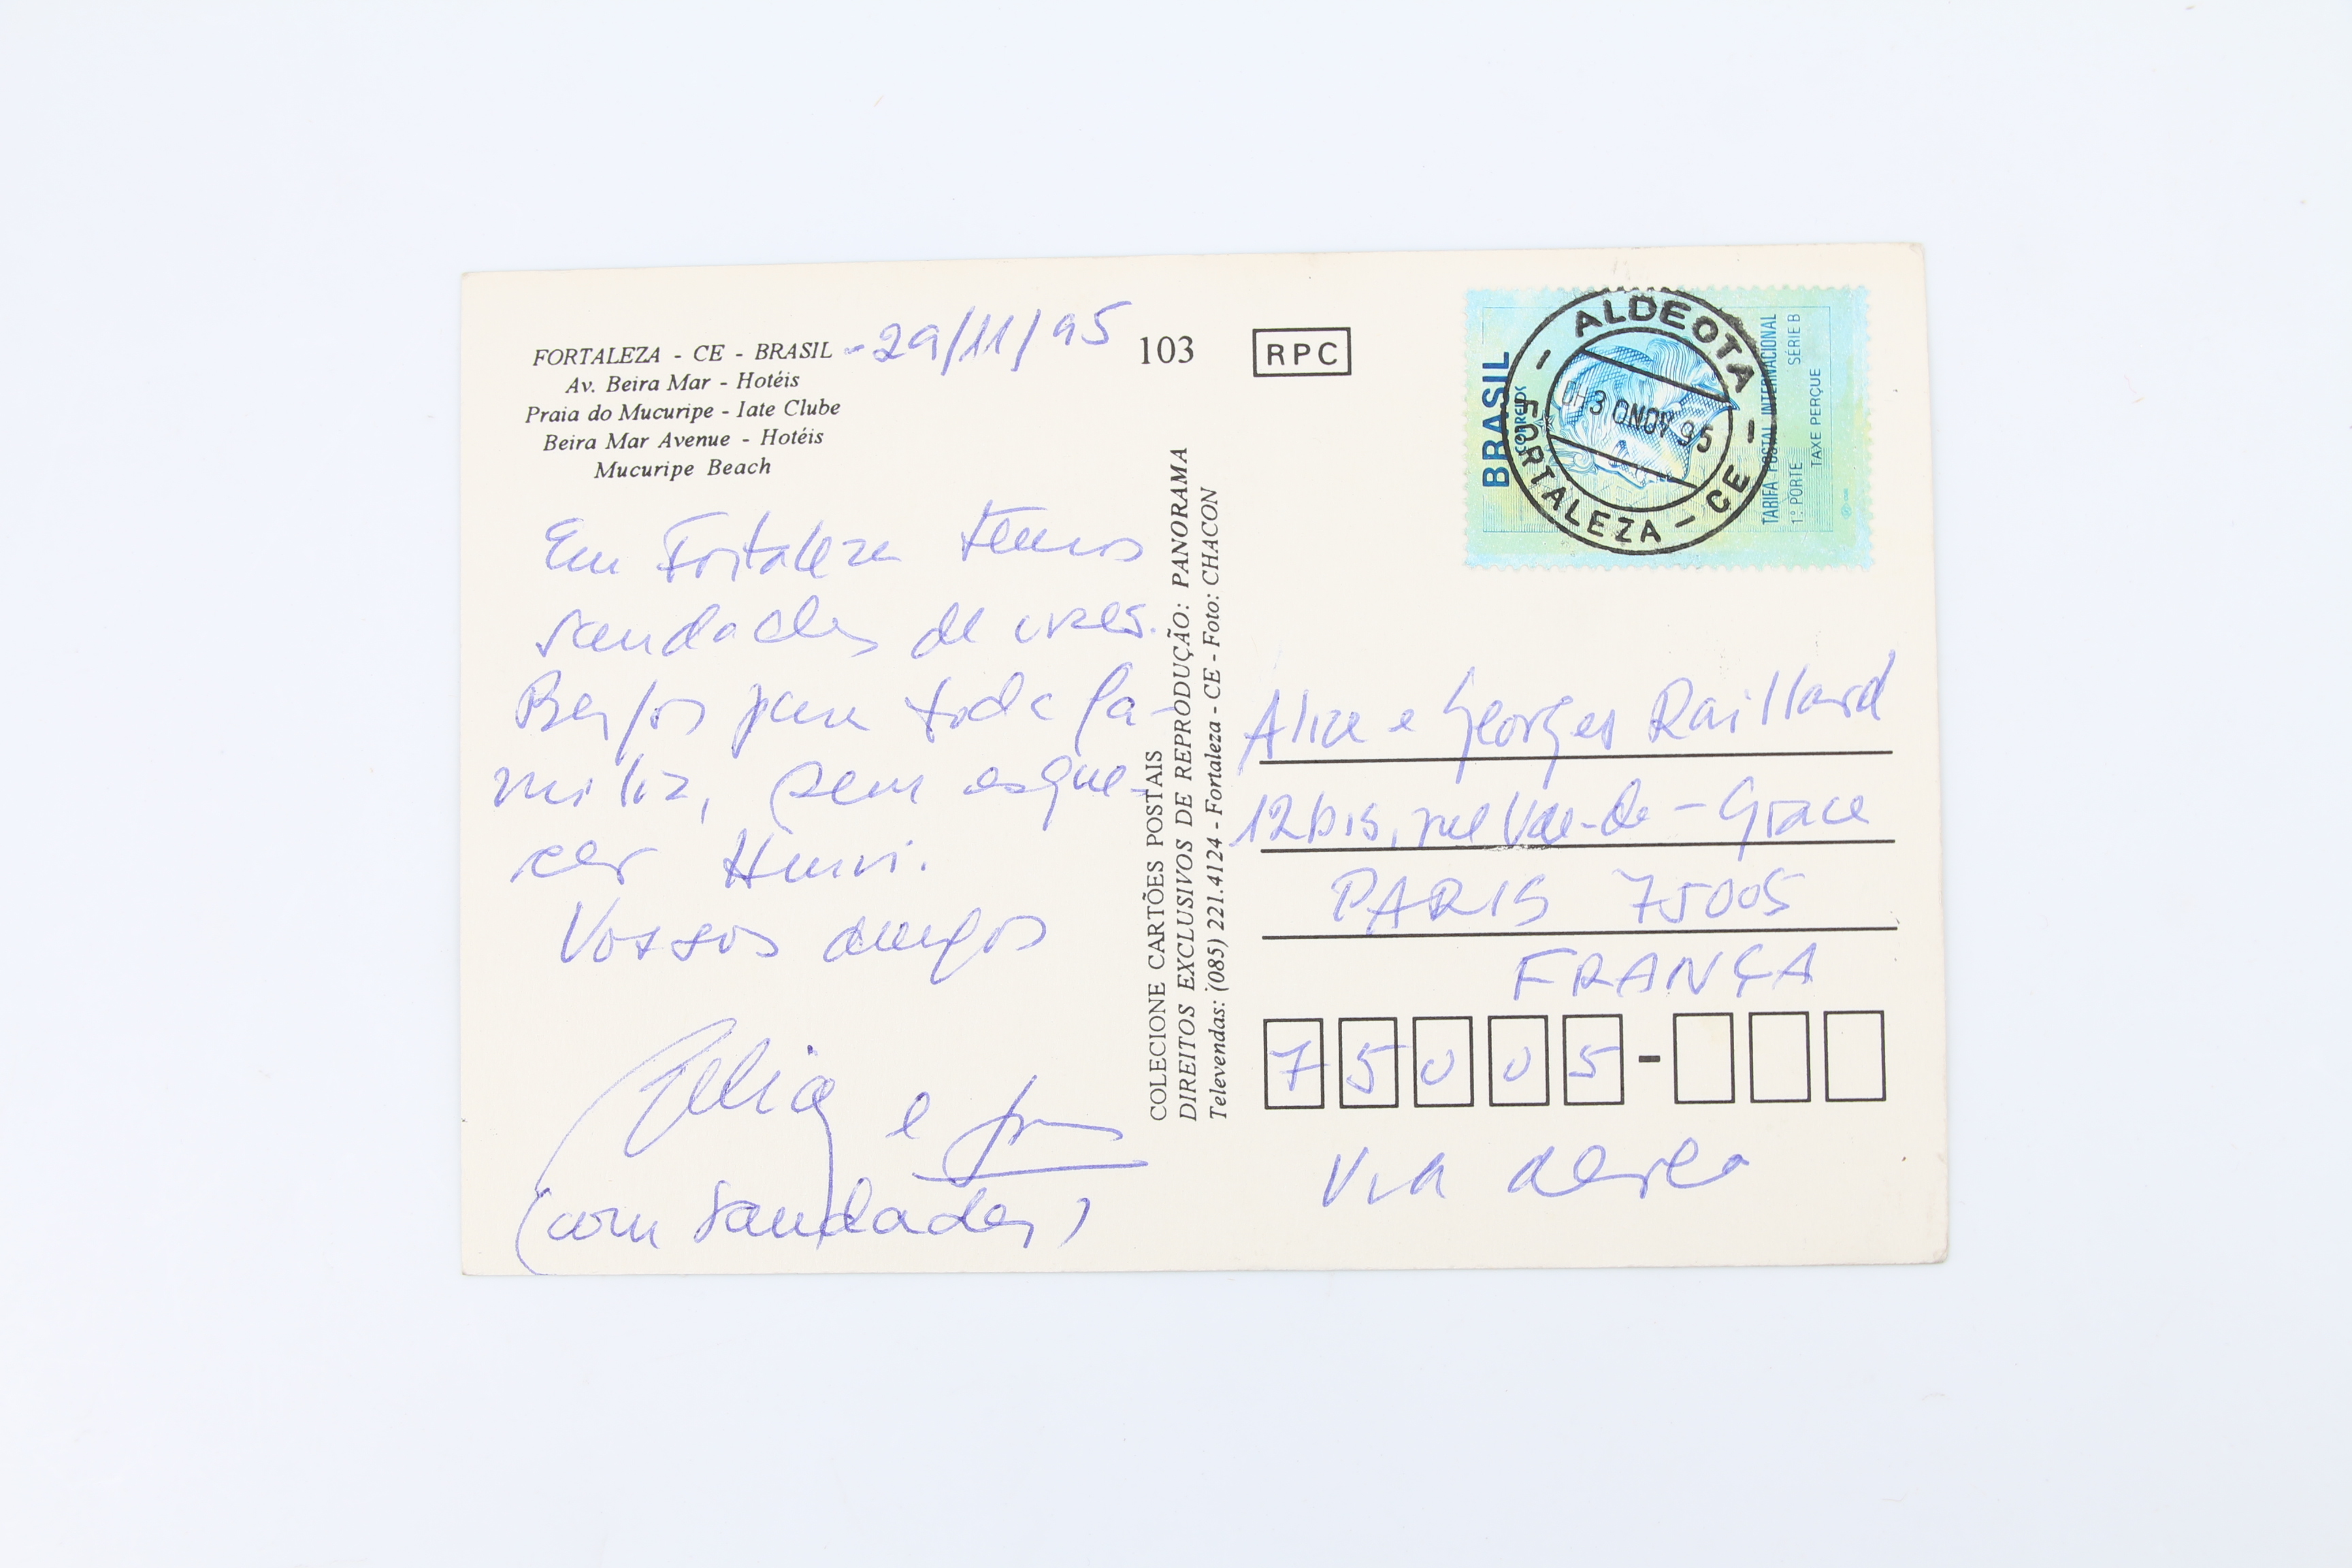 FORTALEZA - CE - BRASIL - 29/11/95
Av. Beira Mar - Hotéis
Praia do Mucuripe - Iate Clube
Beira Mar Avenue - Hotéis
Mucuripe Beach
103
RPC
Em Fortaleza temos
saudades de vocês.
Beijos para toda fa-
milia, sem esque-
cer Henri.
Vossos amigos
Zelia e
(com saudades)
COLECIONE CARTÕES POSTAIS
DIREITOS EXCLUSIVOS DE REPRODUÇÃO: PANORAMA
Televendas: (085) 221.4124 - Fortaleza - CE - Foto: CHACON
BRASIL
CORREIOS
TARIFA POSTAL INTERNACIONAL
1º PORTE SÉRIE B
TAXE PERÇUE
ALDEOTA
30 NOV 95
FORTALEZA - CE
Alice e Georges Raillard
12 bis, rue Val-de-Grace
PARIS 75005
FRANÇA
75005-
Via aerea